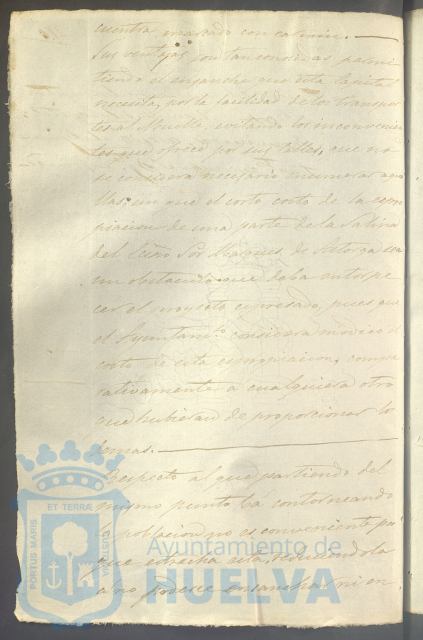 cuentra marcado con carmin.
Sus ventajas son tan conocidas, permi-
tiendo el ensanche que esta localidad
necesita, por la facilidad de los transpor-
tes al Muelle, evitando los inconvenien-
tes que ofrece por sus calles, que no
se considera necesario enumerar aque-
llas: sin que el corto costo de la espro-
piacion de una parte de la Salina
del Excmo Sor Marques de Astorga sea
un obstaculo que deba entorpe-
cer el proyecto espresado, pues que
el Ayuntamto considera módico el
costo de esta espropiacion, compa
rativamente a cualquiera otro
que hubieran de proporcionar los
demas.
Respecto al que partiendo del
mismo punto vá contorneando
la poblacion no es conveniente por
que estrecha esta, reduciendola
a no poderse ensanchar ni en
PORTUS MARIS ET TERRÆ CUSTODIA
Ayuntamiento de
HUELVA